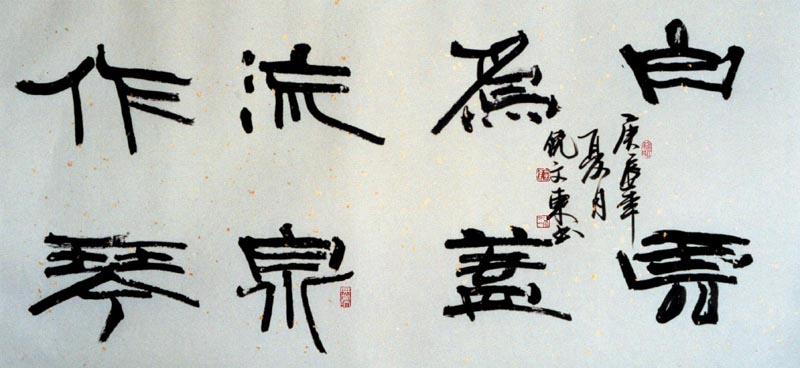 白雲
為蓋
流泉
作琴
庚辰年
夏月
倪文東书